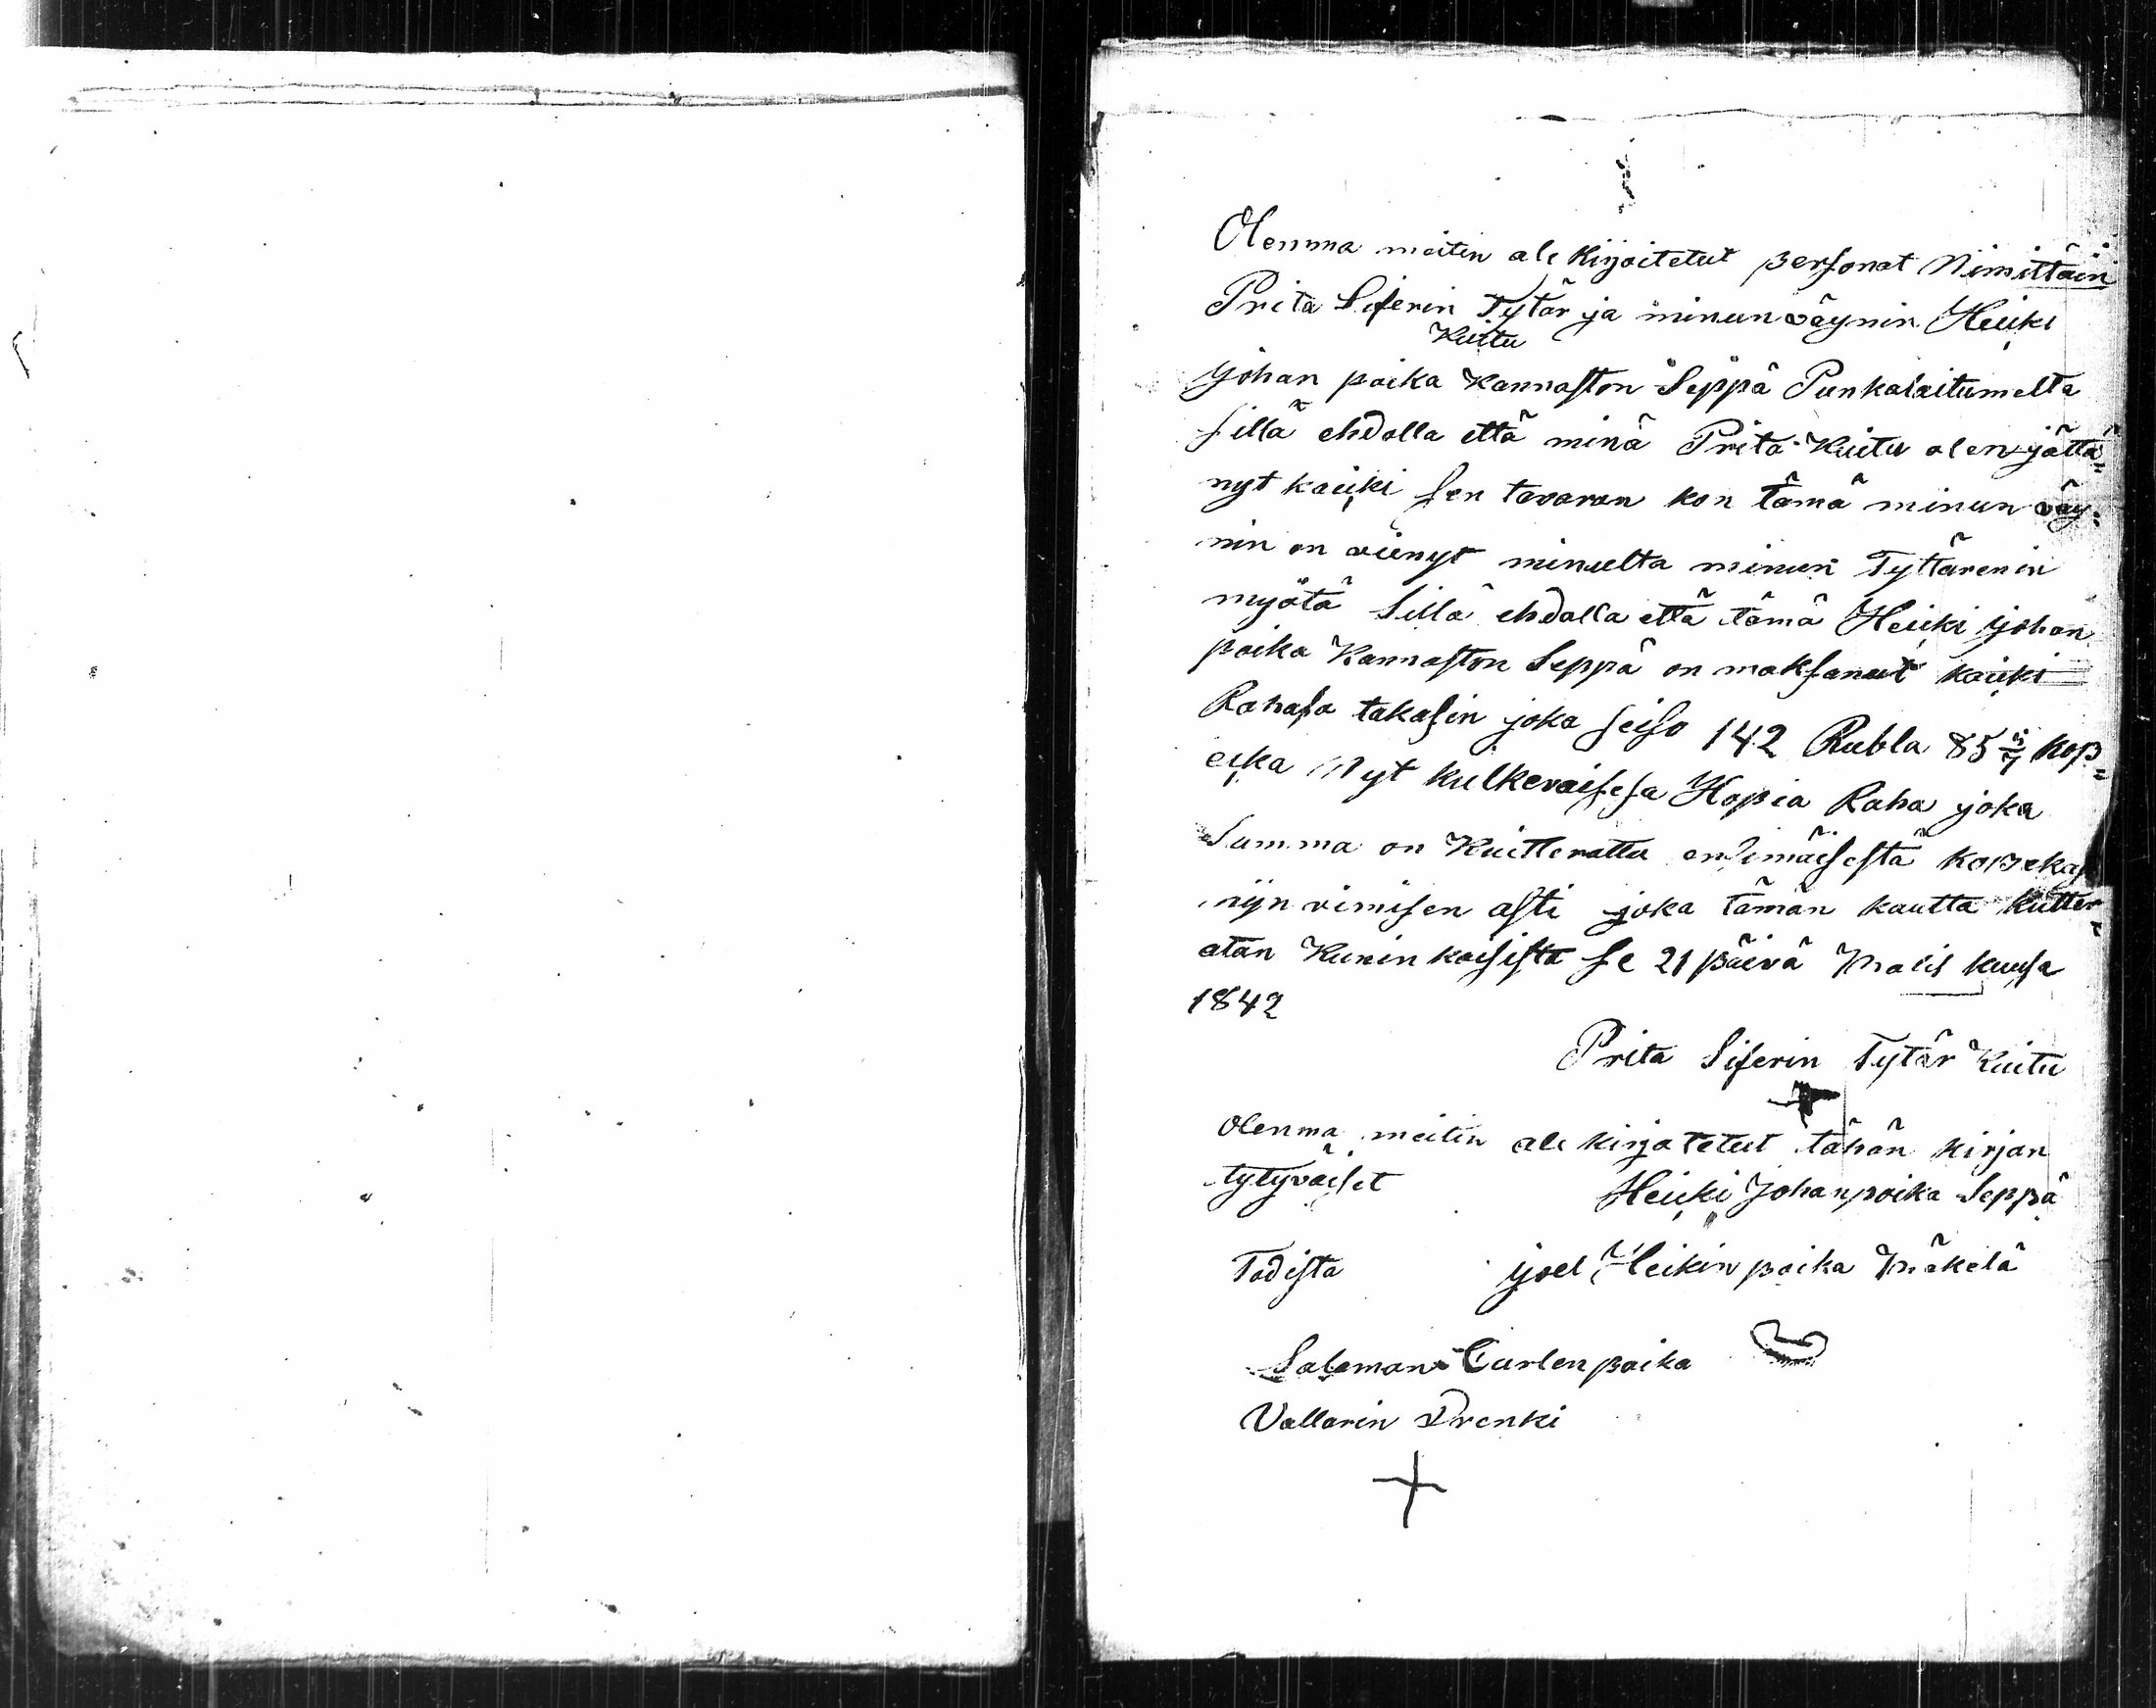 Olemma meitin ale kirjoitetut personat Nimittäin
Prita Siferin Tytär ja minun väynin Heiki
Kuitu
Johan poika Kannaston Seppä Punkalaitumelta
sillä ehdolla että minä Prita Kuitu olen jättä=
nyt kaiiki sen tavaran kon tämä minun väy=
nin on viinyt minulta minun Tyttärenin
myötä Sillä ehdolla että tämä Heiki Johan
poika Kannaston Seppä on maksanut kaiki
Rahasa takasin joka seiso 142 Rubla 85 5/7 kop=
eika Nyt kulkevaisesa Hopia Raha joka
Summa on Kuitterattu ensimäisestä kopekast
niin vimisen asti joka tämän kautta kuitter=
atan Kuninkaisista se 21 päivä Malis kuusa
1842
Prita Siferin Tytär Kuitu
Olenma meitin ale kirjatetut tähän kirjan
tytyväiset Heiki Johanpoika Seppä
Todista Joel Heikin poika Mäkelä
Saleman Carlen poika
Vallarin Drenki